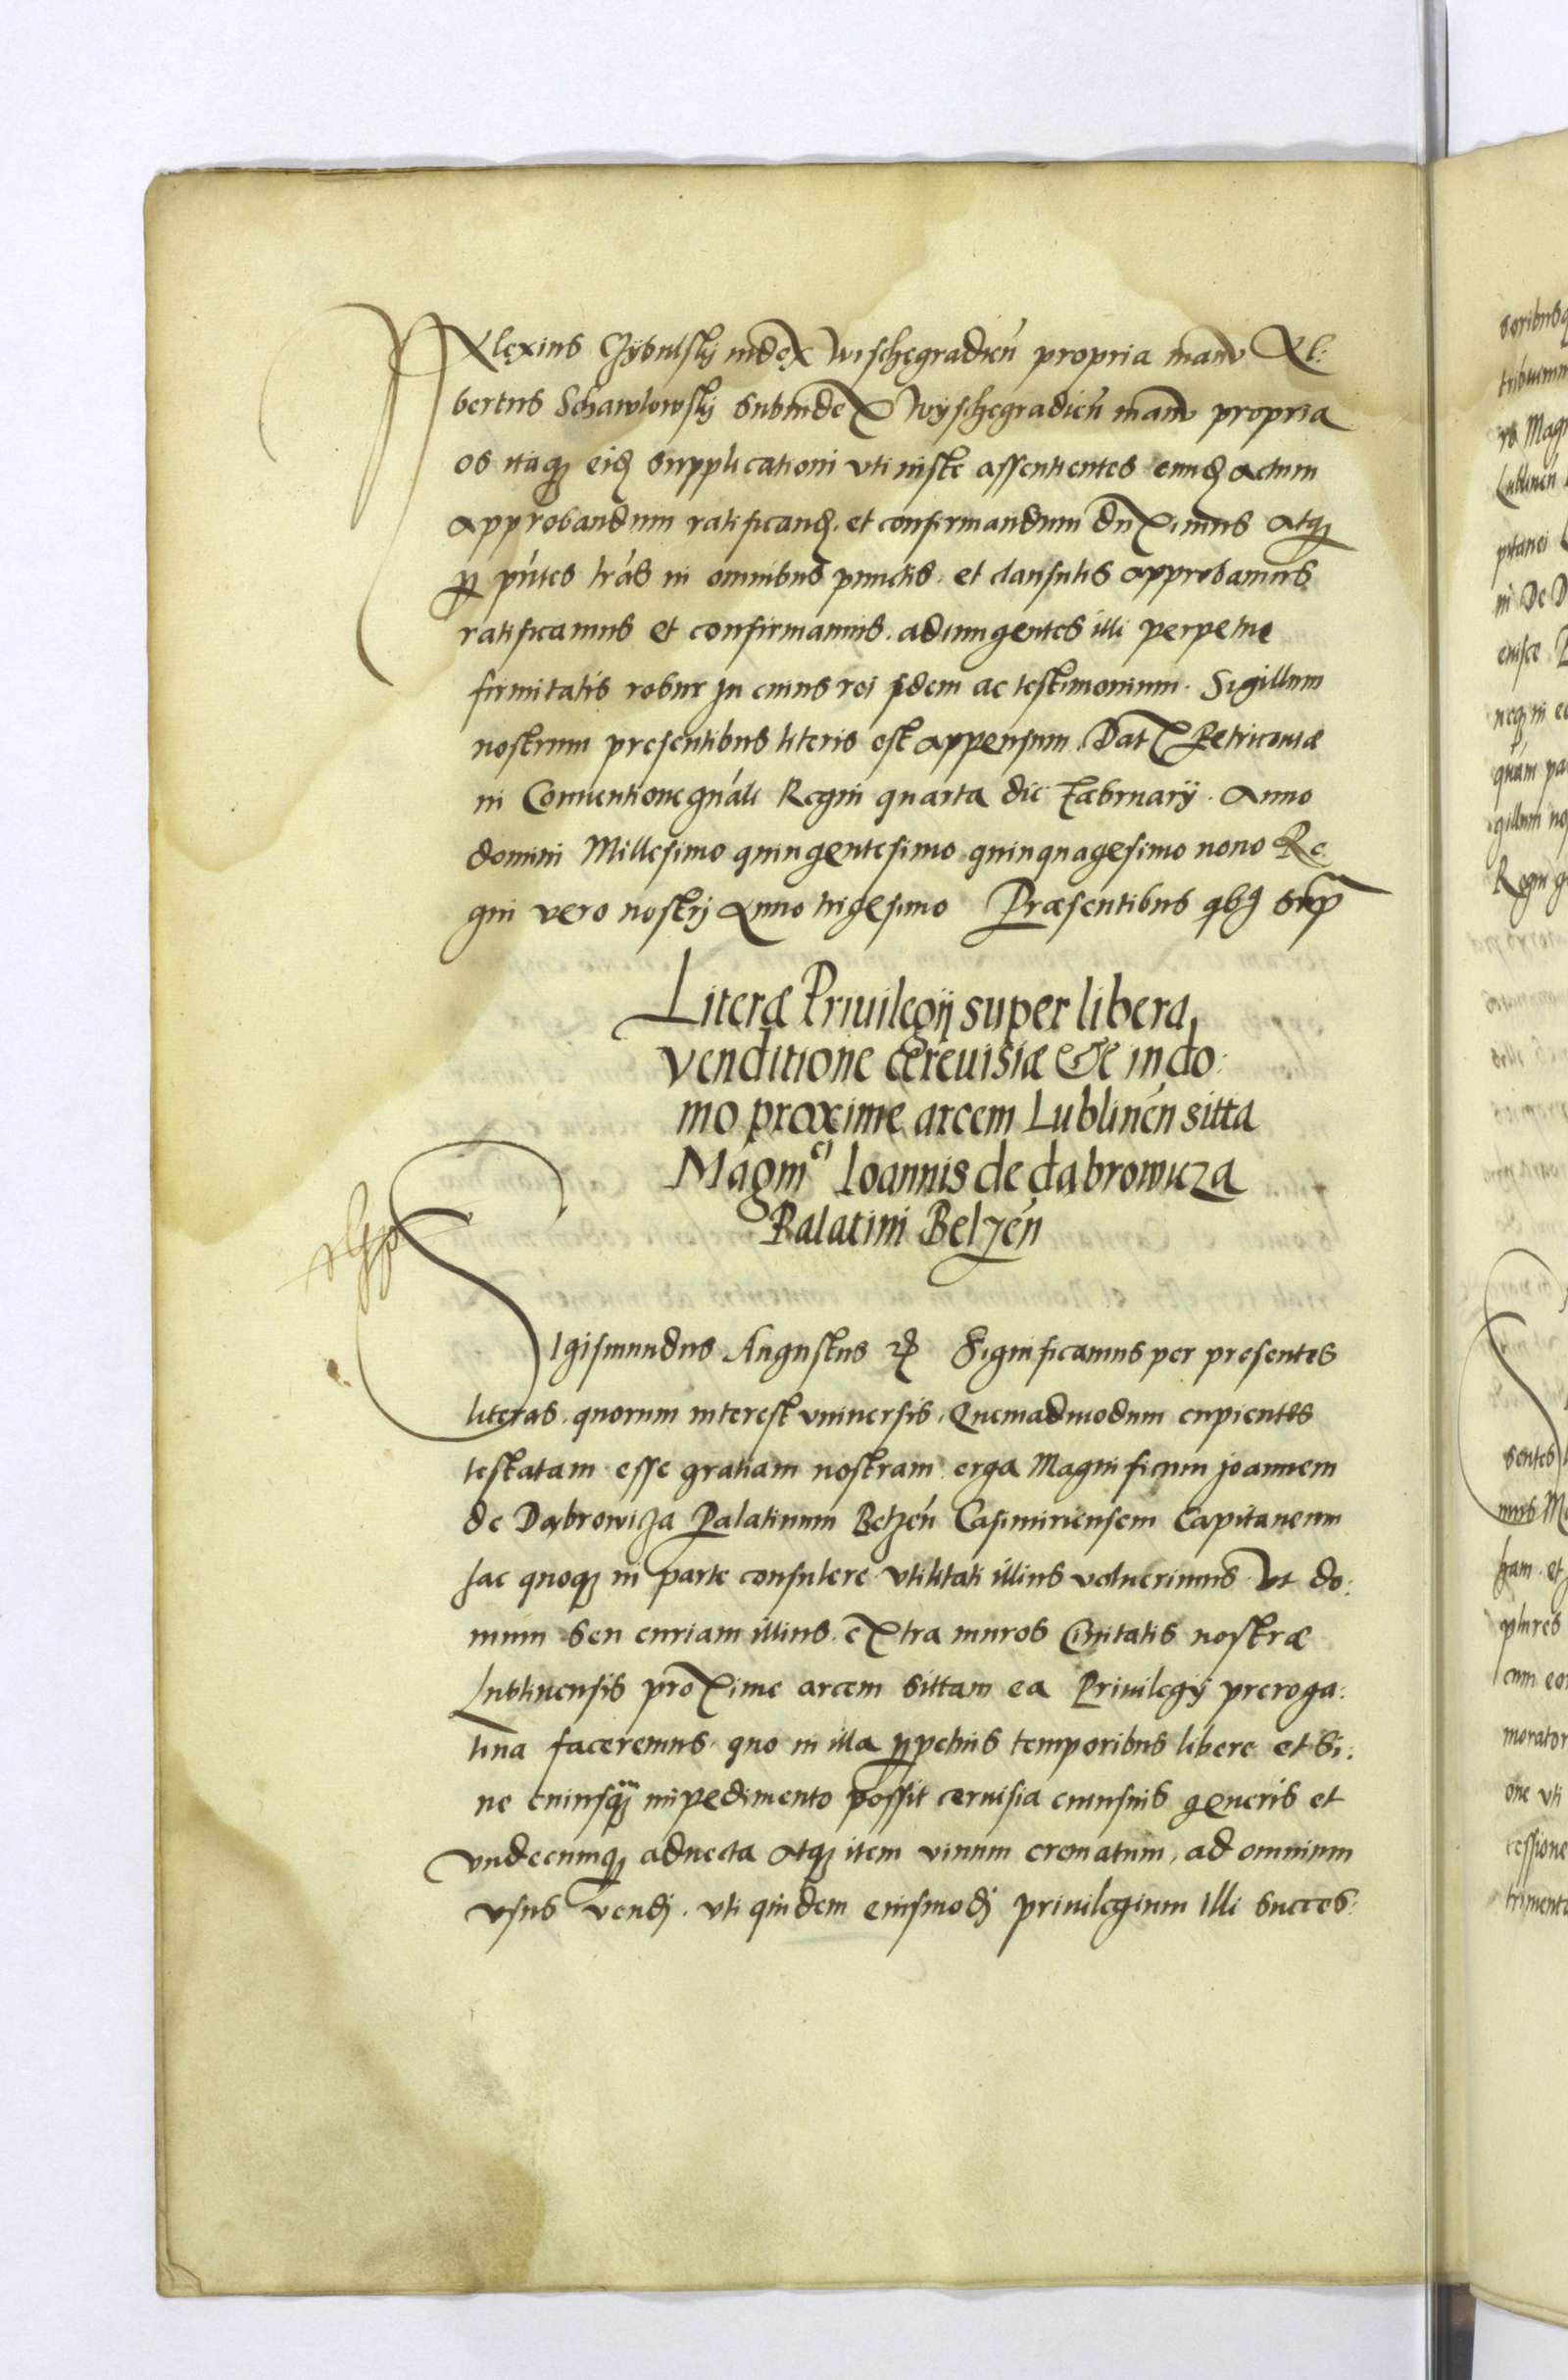 Alexius Czÿbulskÿ iudex Wischegradień propria manu Al:
bertus Schawlowskÿ subiudex Wÿschegradień manu propria
Nos itaq₃ eid₃ supplicationi vti iuste assentientes eund₃ actum
approbandum ratificand₃ et confirmandum duximus atq₃
ꝑ pńtes lrás in omnibus punctis et clausulis approbamus
ratificamus et confirmamus. adiungentes illi perpetuę
firmitatis robur In cuius rei fidem ac testimonium. Sigillum
nostrum presentibus literis est appensum. Dat Petricouiæ
in Conuentione gnáli Regni quarta die Fæbruarÿ. Anno
domini Millesimo quingentesimo quinquagesimo nono Re
gni vero nostrj Anno trigesimo Præsentibus qbꝫ sup
Literæ Priuilegÿ super libera
venditione cereuisiæ &c in do:
mo proxime arcem Lublinén sitta
Magmci Ioannis de dabrowicza
Palatini Belzén
Sigismundus Augustus Significamus per presentes
literas quorum interest vniuersis, Quemadmodum cupientes
testatam esse gratiam nostram erga Magnificum Joannem
de Dąbrowicza Palatinum Belzén Casimiriensem Capitaneum
hac quoq₃ in parte consulere vtilitati illius voluerimus Vt do:
mum seu curiam illius extra muros Ciuitatis nostræ
Lublinensis proxime arcem sittam ea Priuilegÿ preroga:
tiua faceremus quo in illa ꝑpetuis temporibus libere et si:
ne cuiusq₃ impedimento possit ceruisia cuiusuis generis et
vndecumq₃ aduecta atq₃ item vinum crematum, ad omnium
vsus vendj. vti quidem eiusmodj priuilegium Illi succes: